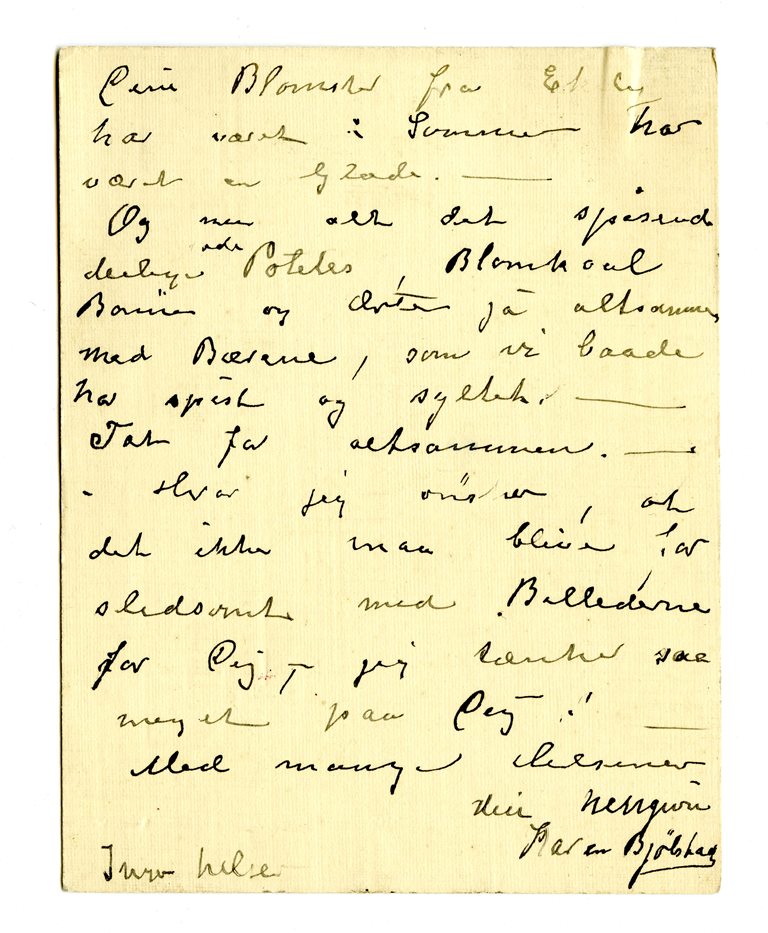 Dine Blomster fra Ekely
har været i Sommer har
været en Glæde. —
Og nu alt det spisende
deilige ade Potetes, Blomkaal
Bønner og Erter ja altsammen
med Bærene, som vi baade
har spist og syltet. —
Tak for altsammen. —
- Hvor jeg ønsker, at
det ikke maa blive for
slidsomt med Billederne
for Dig, — jeg tænker saa
meget paa Dig! —
Med mange Hilsener
din hengivne
Karen Bjølstad
Inger hilser